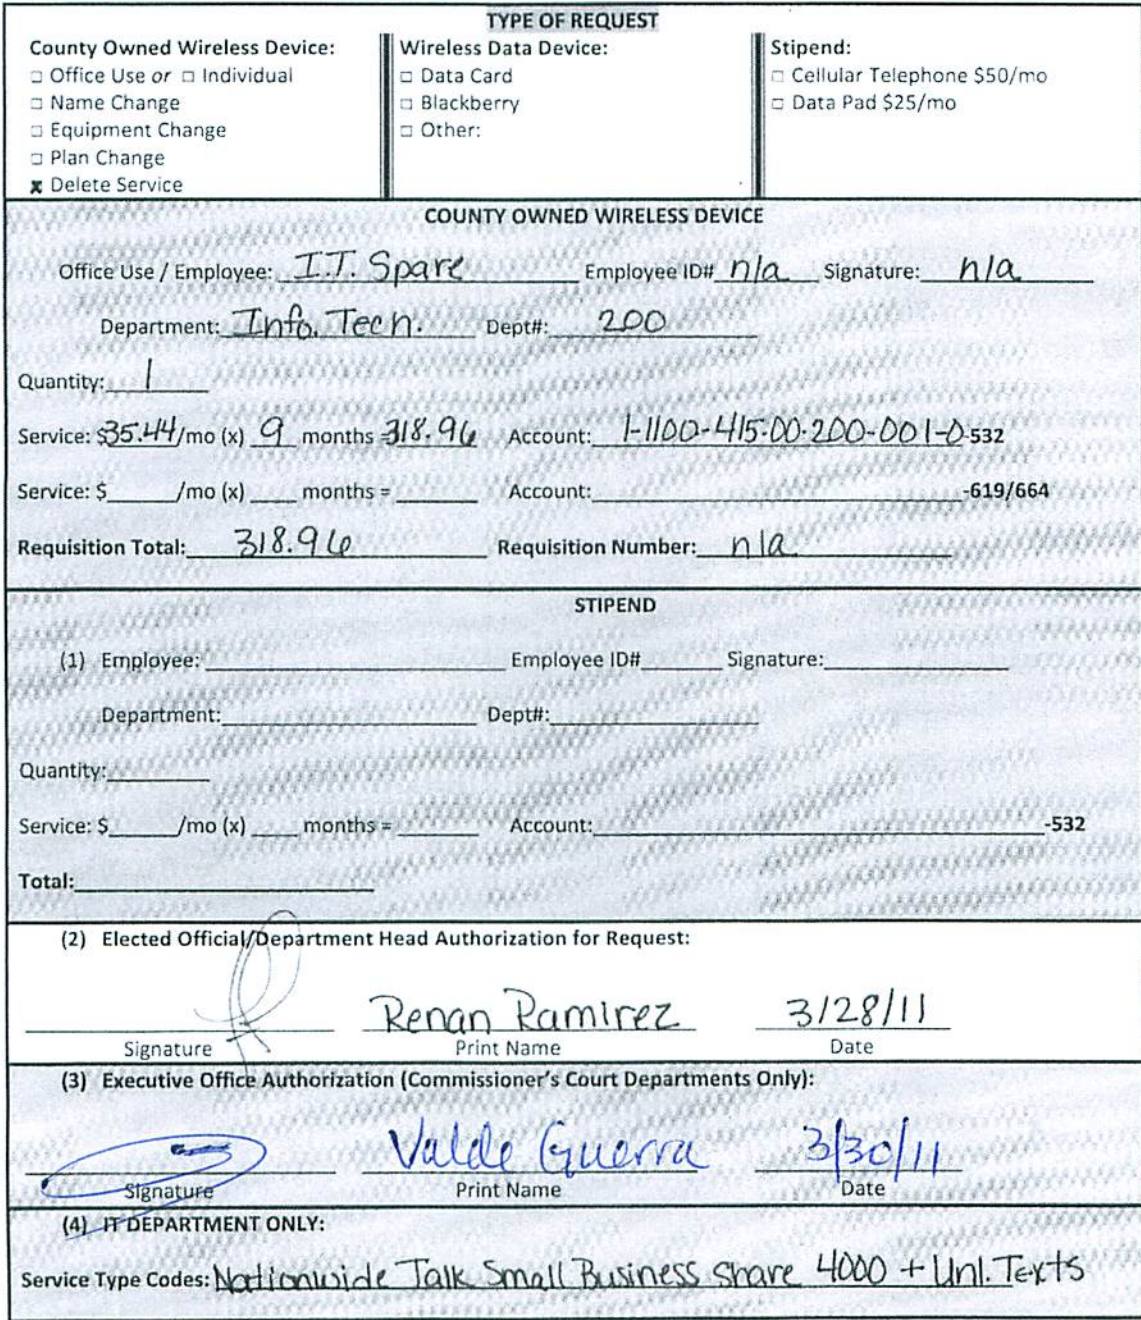 TYPE OF REQUEST
County Owned Wireless Device:
□ Office Use or □ Individual
□ Name Change
□ Equipment Change
□ Plan Change
x Delete Service
Wireless Data Device:
□ Data Card
□ Blackberry
□ Other:
Stipend:
□ Cellular Telephone $50/mo
□ Data Pad $25/mo
COUNTY OWNED WIRELESS DEVICE
Office Use / Employee: I.T. Spare Employee ID# n/a Signature: n/a
Department: Info. Tech. Dept#: 200
Quantity: 1
Service: $35.44/mo (x) 9 months 318.96 Account: 1-1100-415-00-200-001-0-532
Service: $ /mo (x) months = Account: -619/664
Requisition Total: 318.96 Requisition Number: n/a
STIPEND
(1) Employee: Employee ID# Signature:
Department: Dept#:
Quantity:
Service: $ /mo (x) months = Account: -532
Total:
(2) Elected Official/Department Head Authorization for Request:
Renan Ramirez 3/28/11
Signature Print Name Date
(3) Executive Office Authorization (Commissioner's Court Departments Only):
Valde Guerra 3/30/11
Signature Print Name Date
(4) IT DEPARTMENT ONLY:
Service Type Codes: Nationwide Talk Small Business Share 4000 + Unl. Texts